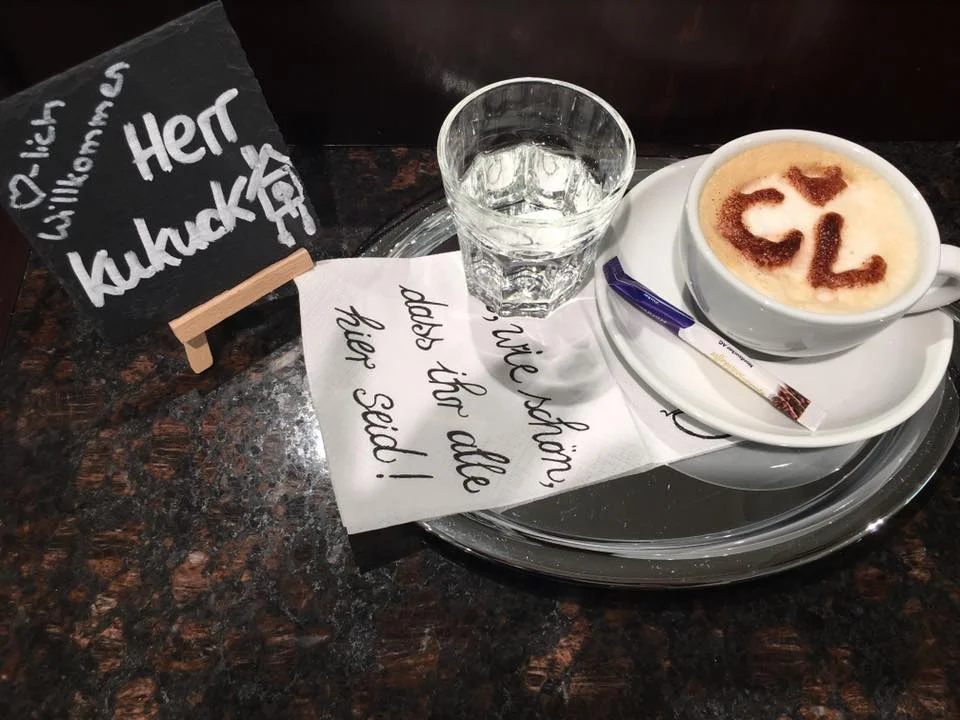 ♡-lich
Willkommen
Herr
Kukuck
, wie schön,
dass ihr alle
hier seid!
CL